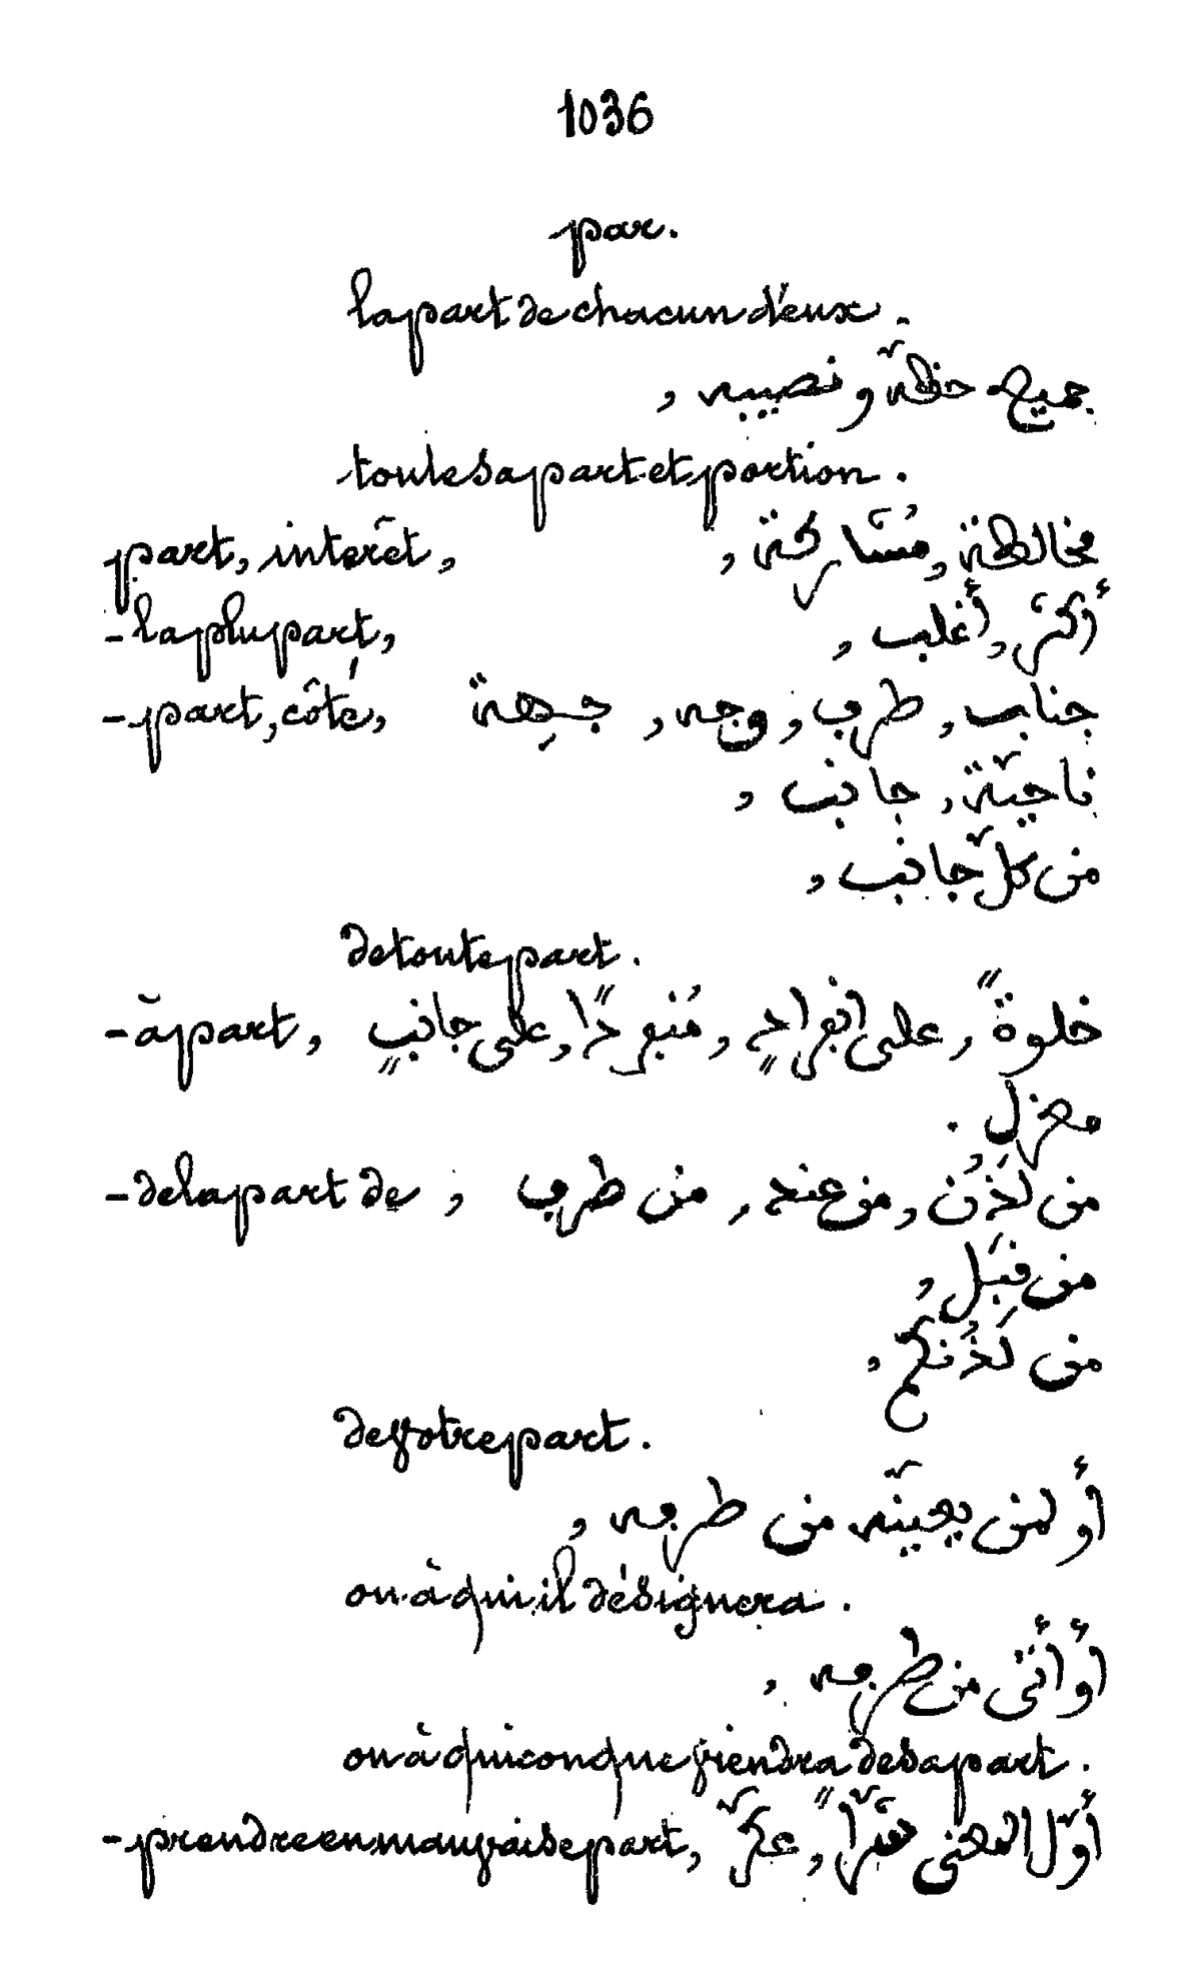 1036
par.
la part de chacun d'eux.
جميع حظّه ونصيبه,
toute sa part et portion.
part, interêt, مخالطة, مُشَاركة,
- la plupart, أكثر, أغلب,
- part, côté, جناب, طرف, وجه, جِهة
ناحيّة, جانب,
من كلّ جانب,
de toute part.
- à part, خلوةً, على انفرادٍ, مُنفردًا, على جانبٍ
معزل.
- de la part de, من لَدُن, من عند, من طرف
من قِبَل,
من لَدُنكم,
de votre part.
أو لمن يعيّنه من طرفه,
ou à qui il désignera.
أو أتى من طرفه,
ou à quiconque viendra de sa part.
- prendre en mauvaise part, أوّل المعنى شرًّا, عكّر